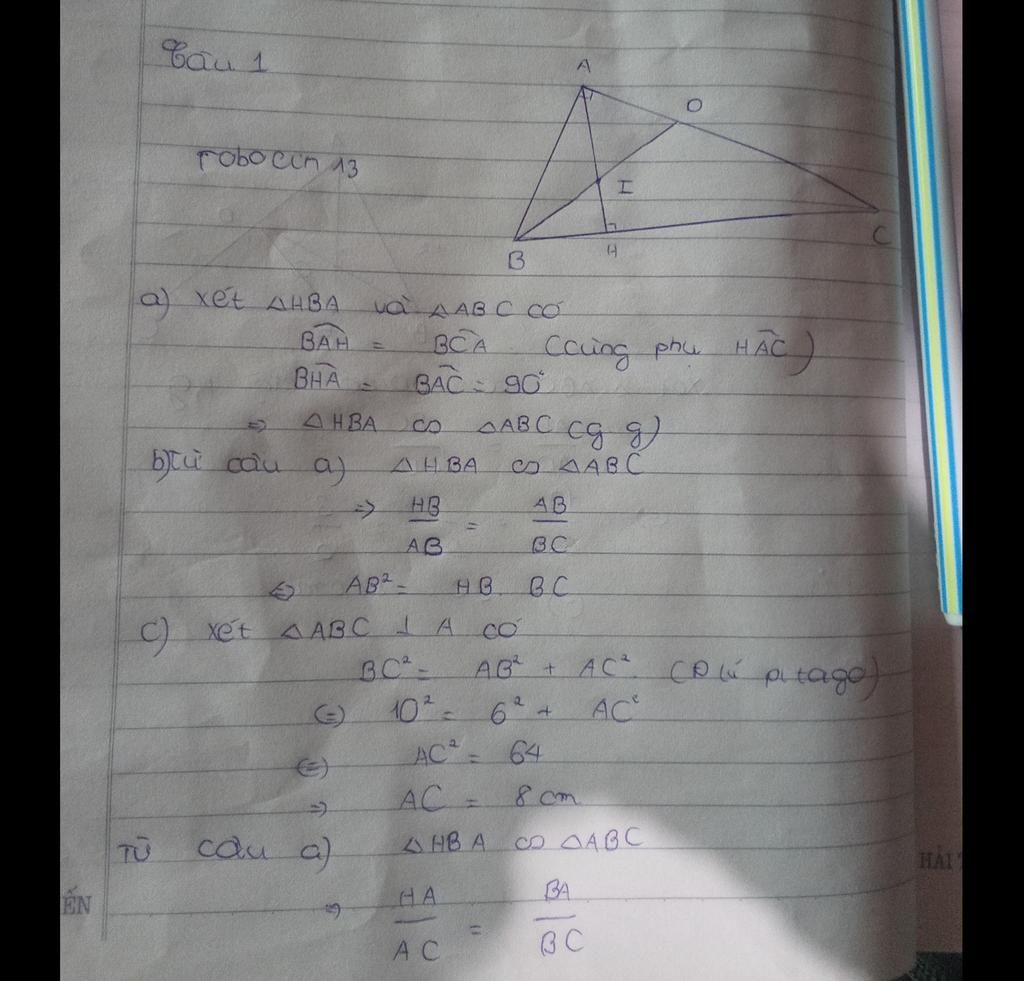 Câu 1
A
O
robocon 13
I
C
H
B
a) xét △HBA và △ABC có
BÂH = BĈA (cùng phụ HÂC)
BĤA = BÂC = 90°
=> △HBA ∽ △ABC (g g)
b) Từ câu a) △HBA ∽ △ABC
=> HB/AB = AB/BC
<=> AB² = HB. BC
c) xét △ABC ⊥ A có
BC² = AB² + AC². (Đ lí pitago)
<=> 10² = 6² + AC²
<=> AC² = 64
=> AC = 8 cm
Từ câu a) △HBA ∽ △ABC
=> HA/AC = BA/BC
ẾN
HẢI